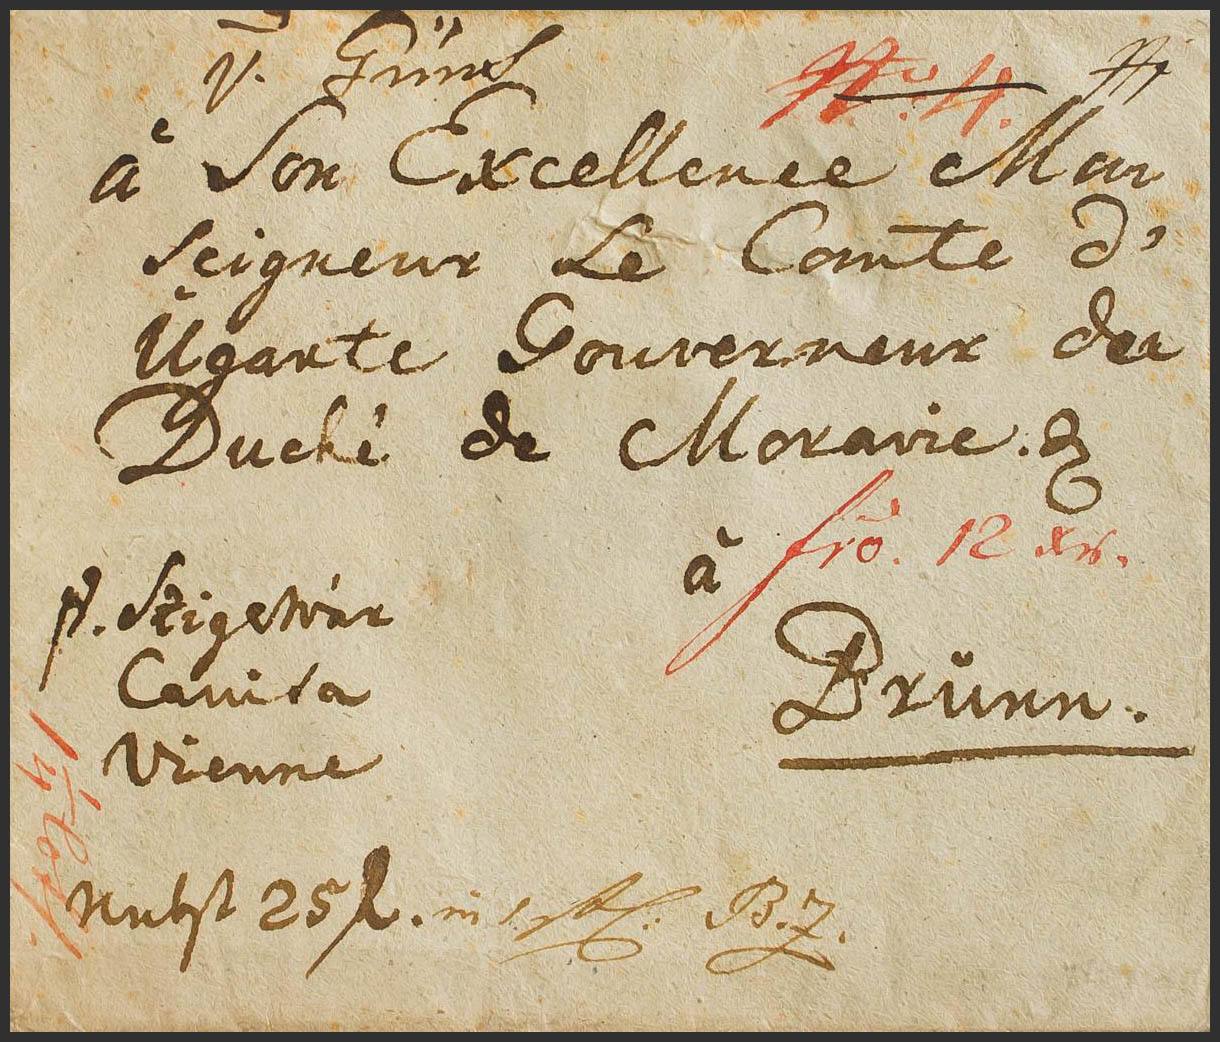 v. Güns
No. 4.
à Son Excellence Mon
seigneur Le Comte d'
Ugarte Gouverneur du
Duché de Moravie.
frō. 12 xr.
à
Brünn.
p. Szigethvár
Canisa
Vienne
Nebst 25 f. in B.Z.